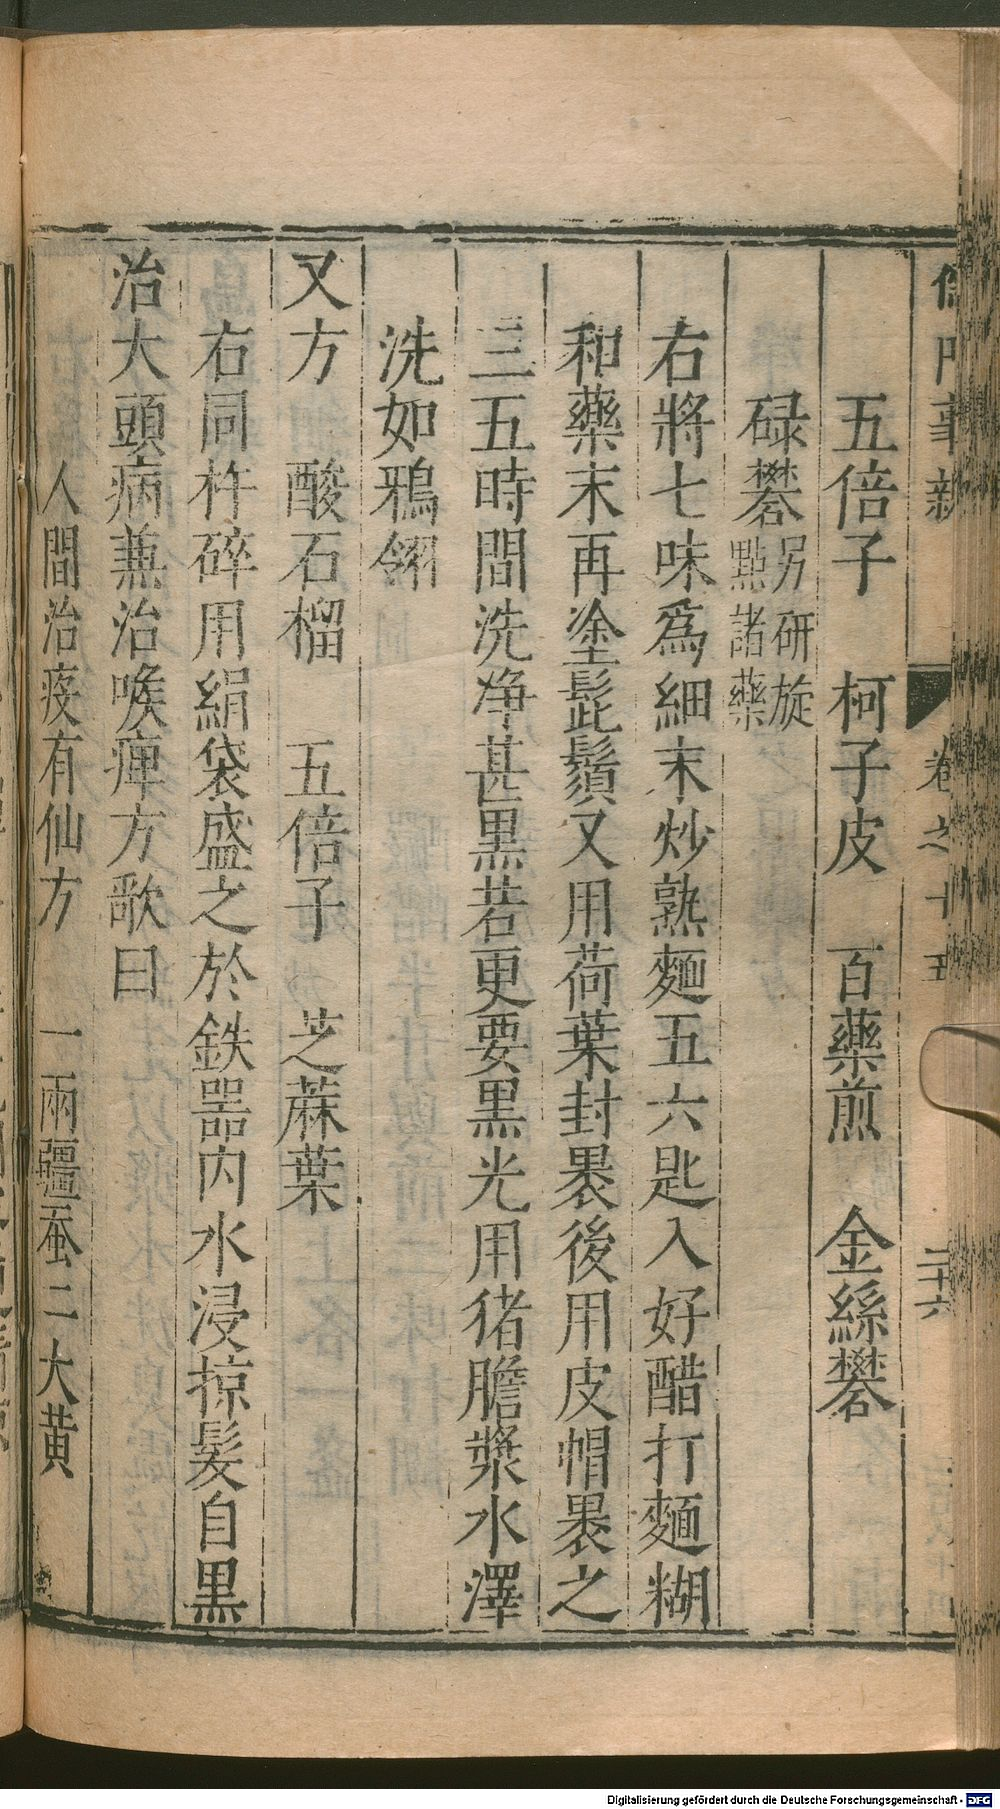 儒門事親 卷之十五 二十六
五倍子 柯子皮 百藥煎 金絲礬
碌礬 另研旋
點諸藥
右將七味爲細末炒熟麵五六匙入好醋打麵糊
和藥末再塗髭鬚又用荷葉封裹後用皮帽裹之
三五時間洗净甚黒若更要黒光用猪膽漿水澤
洗如鴉翎
又方 酸石榴 五倍子 芝蔴葉
右同杵碎用絹袋盛之於鉄噐内水浸掠髮自黒
治大頭病兼治喉痺方歌曰
人間治疫有仙方 一兩疆蚕二大黄
Digitalisierung gefördert durch die Deutsche Forschungsgemeinschaft - DFG